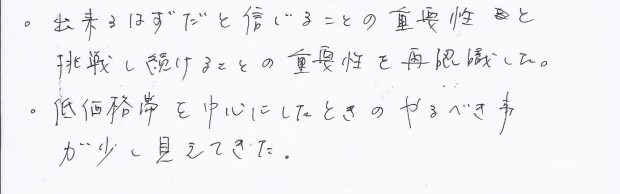 。出来るはずだと信じることの重要性と
挑戦し続けることの重要性を再認識した。
・低価格帯を中心にしたときのやるべき事
が少し見えてきた。